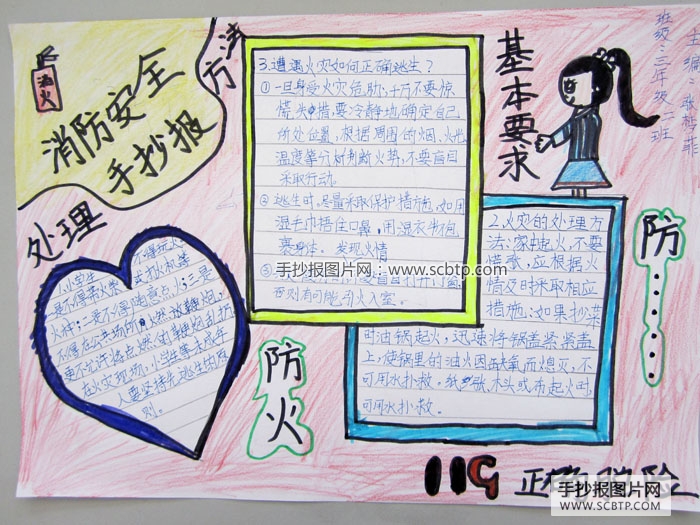 消火
消防安全
手抄报
方法
3.遭遇火灾如何正确逃生？
①一旦身受火灾危胁，千万不要惊
慌失措，要冷静地确定自己
所处位置，根据周围的烟、火光、
温度等分析判断火势，不要盲目
采取行动。
②逃生时，尽量采取保护措施，如用
湿毛巾捂住口鼻、用湿衣书包
裹身体。发现火情
盲目打开门窗
否则有可能引火入室。
手抄报图片网：www.scbtp.com
基本要求
主编
班级：三年级二班
处理
小学生
不得玩火
不得带火柴
火种；二是不得随意点火；三是
不得在公共场所燃放鞭炮，
更不允许将点燃的鞭炮乱扔
在火灾现场，小学生等未成年
人要坚持先逃生的原
则。
2.火灾的处理方
法：家中起火，不要
慌歌，应根据火
情及时采取相应
措施：如果炒菜
时油锅起火，迅速将锅盖紧紧盖
上，使锅里的油火因缺氧而熄灭，不
可用水扑救。纸张木头或布起火时，
可用水扑救。
防
防火
119
正确
险
手抄报图片网
SCBTP.COM